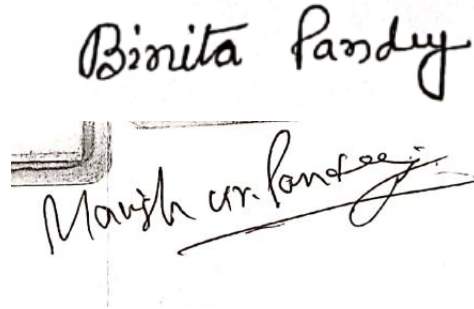 Binita Pandey
Manish Kr. Pandey